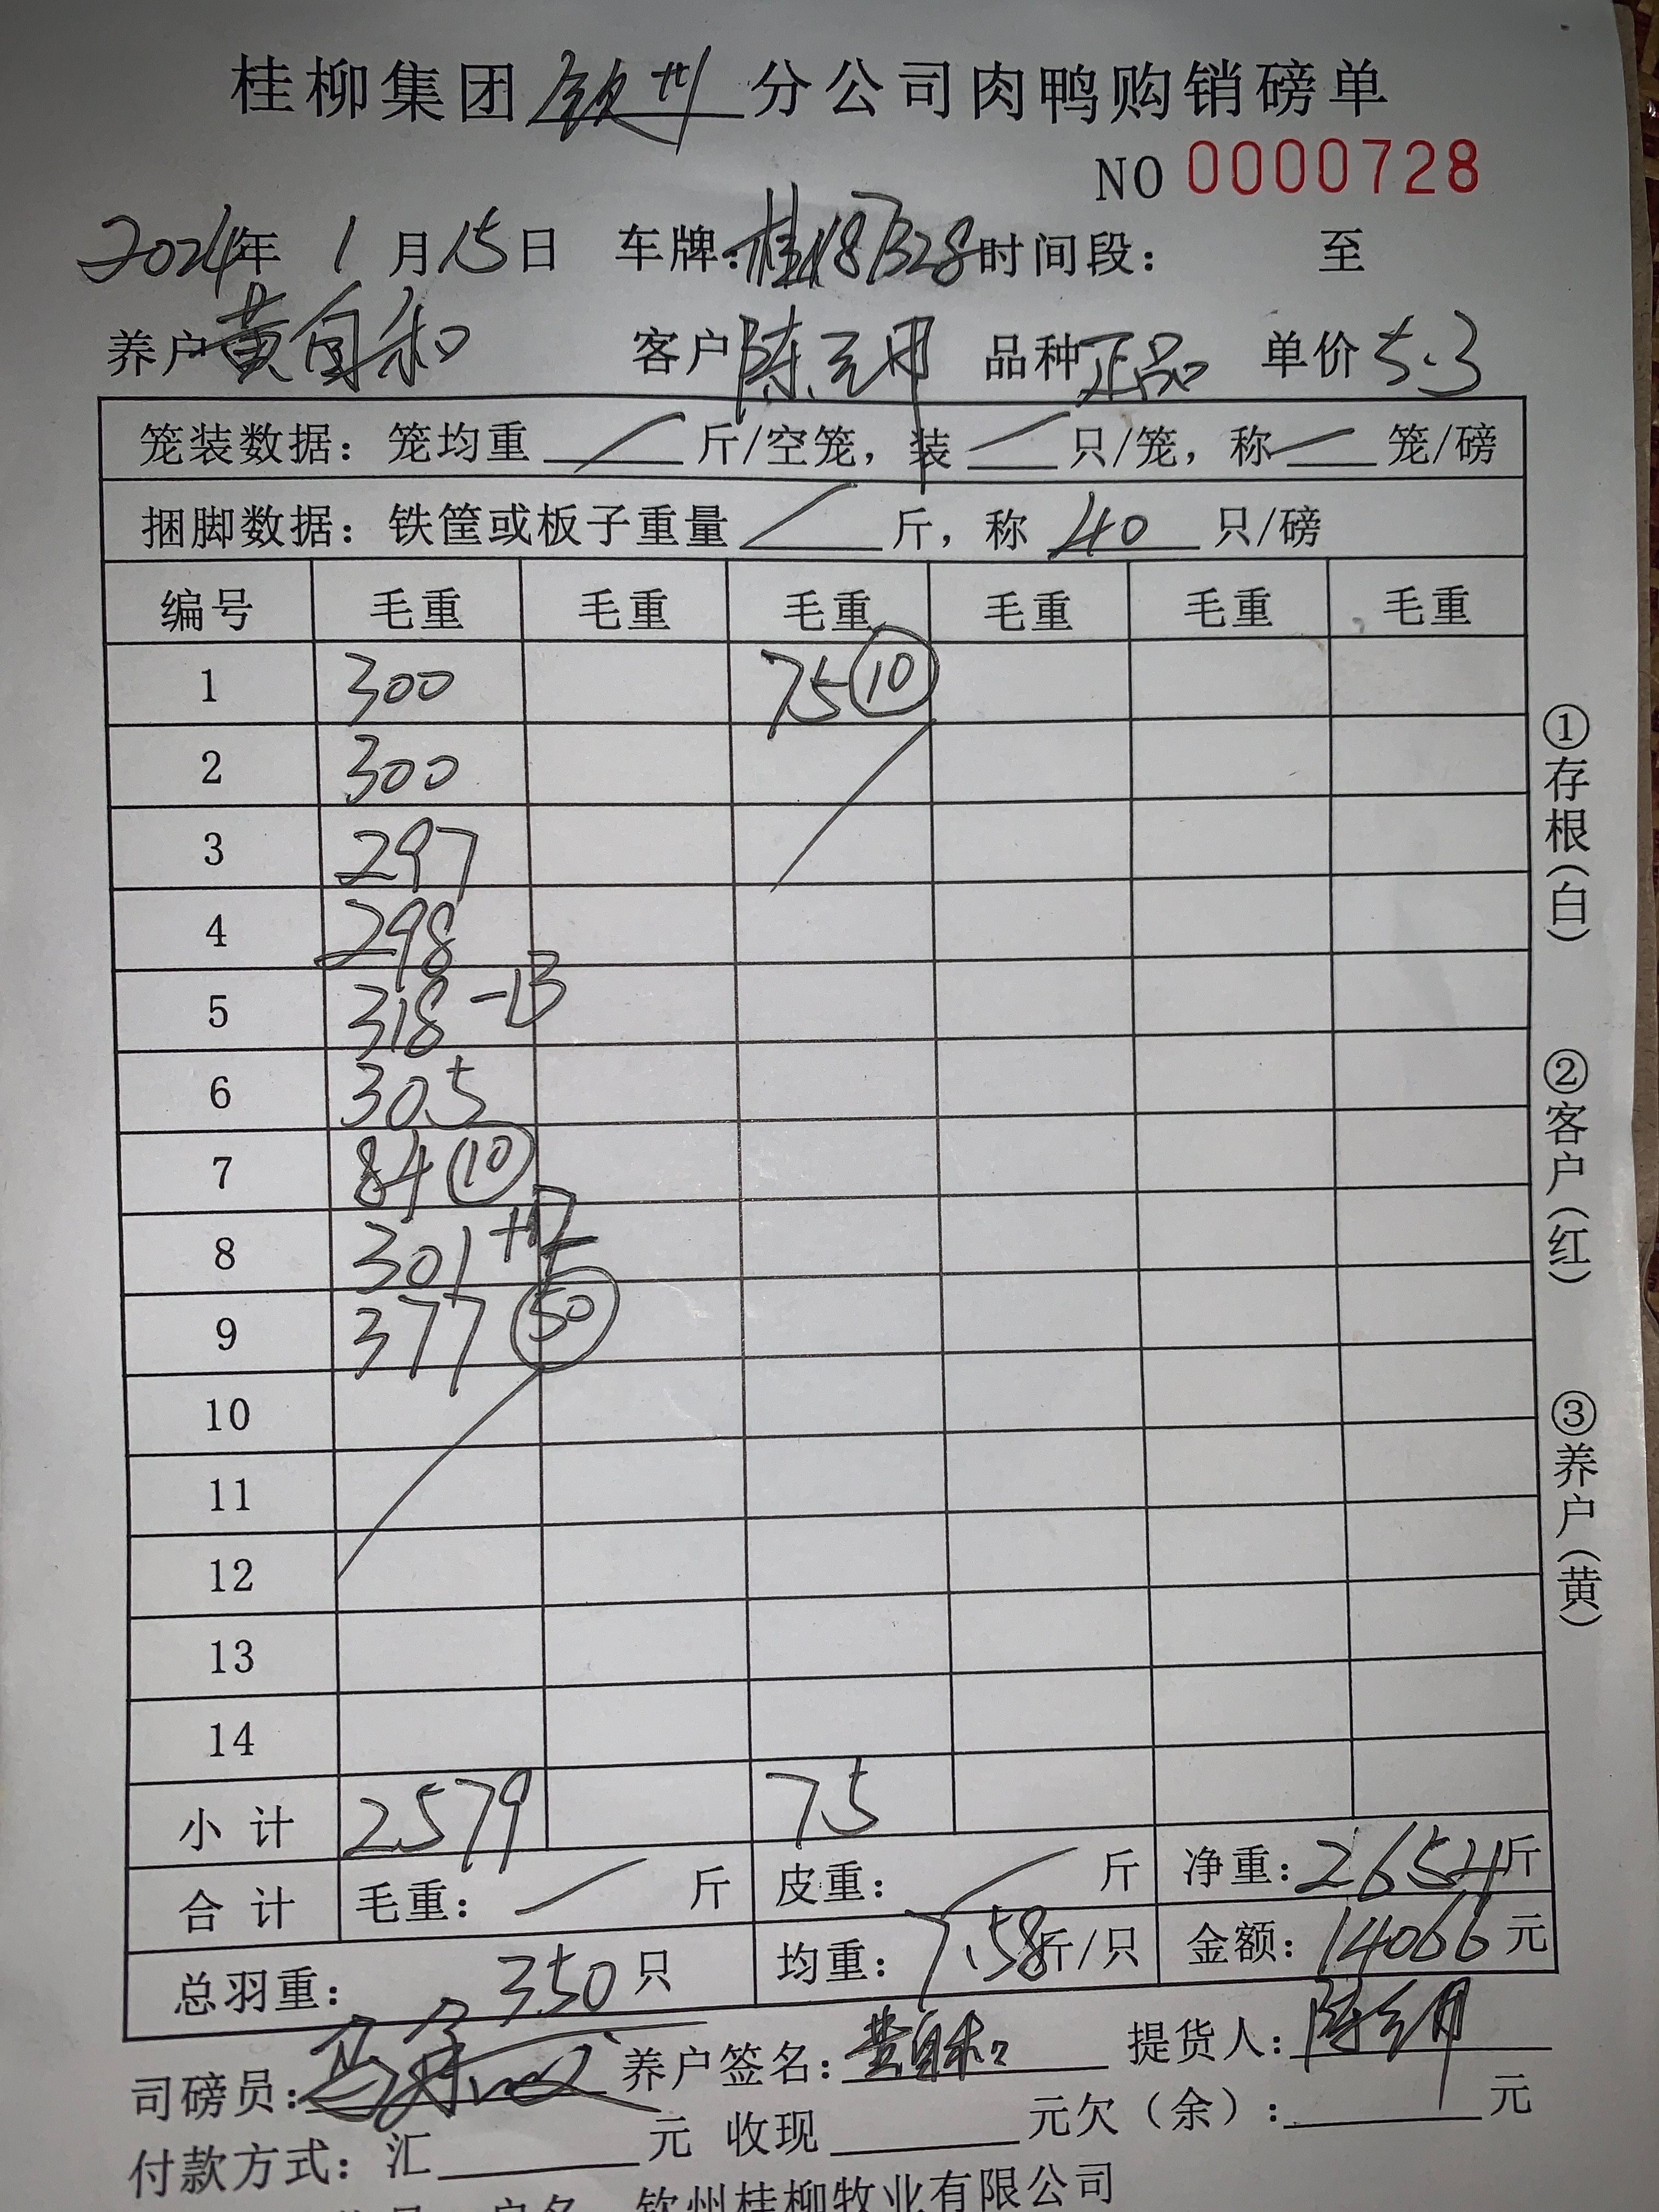 桂柳集团 钦州 分公司肉鸭购销磅单
NO 0000728
2024年 1 月 15 日 车牌: 时间段: 至
养户 黄自和 客户 陈 品种 正品 单价 5.3
笼装数据: 笼均重 / 斤/空笼, 装 / 只/笼, 称 / 笼/磅
捆脚数据: 铁筐或板子重量 / 斤, 称 40 只/磅
编号 毛重 毛重 毛重 毛重 毛重 毛重
1 300 75 ⑩
2 300
3 297
4 298
5 318 -13
6 305
7 84 ⑩
8 301
9 377 ㊿
10
11
12
13
14
小计 2579 75
合计 毛重: / 斤 皮重: / 斤 净重: 2654 斤
总羽重: 350 只 均重: 7.58 斤/只 金额: 14066 元
司磅员: 养户签名: 黄自和 提货人: 陈
付款方式: 汇 元 收现 元欠(余): 元
钦州桂柳牧业有限公司
①存根(白)
②客户(红)
③养户(黄)